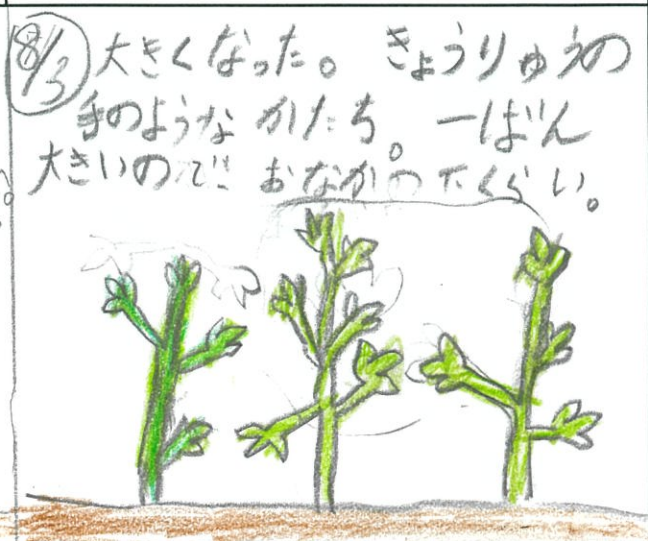 8/3 大きくなった。 きょうりゅうの
手のような かたち。 一ばん
大きいので おなかの下くらい。